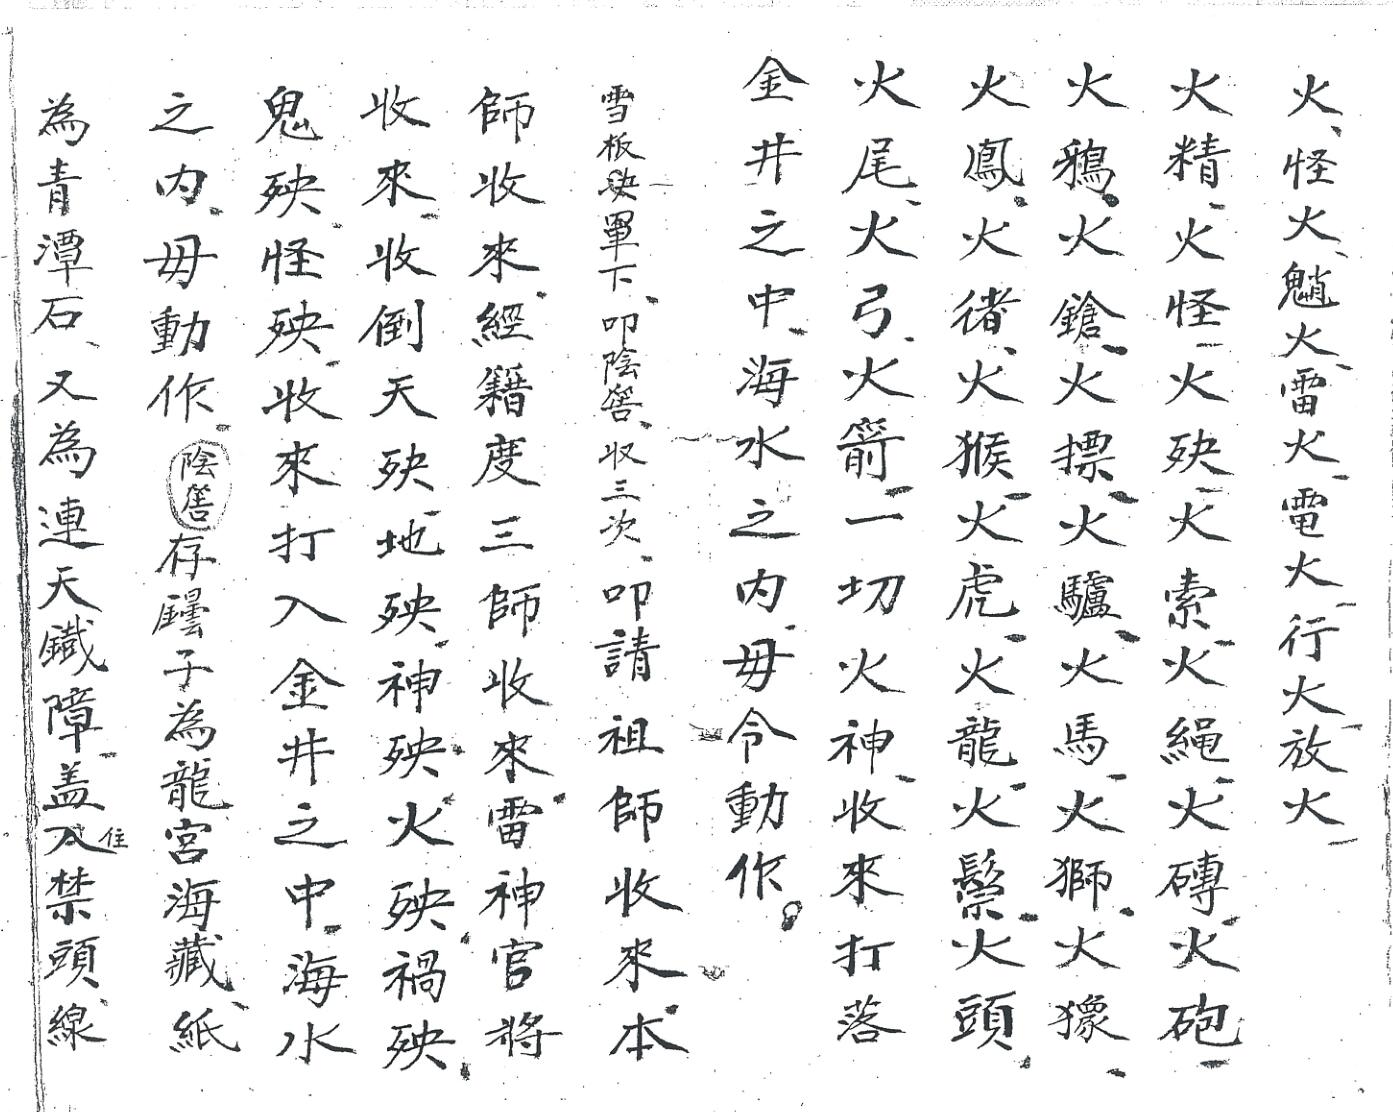 火、怪火、魈火、雷火、電火、行火、放火、
火精、火怪、火殃、火索、火繩、火磚、火砲、
火鴉、火鎗、火摽、火驢、火馬、火獅、火獴、
火鳳、火禇、火猴、火虎、火龍、火鬃、火頭、
火尾、火弓、火箭、一切火神、收來打落
金井之中、海水之内、毋令動作。
雪板訣罩下、叩陰窖、收三次、叩請祖師收來、本
師收來、經籍度三師收來、雷神官將
收來、收倒天殃、地殃、神殃、火殃、禍殃、
鬼殃、怪殃、收來打入金井之中、海水
之内、毋動作、陰窖存罎子為龍宮海藏、紙
為青潭石、又為連天鐵障、盖入住禁頭、線